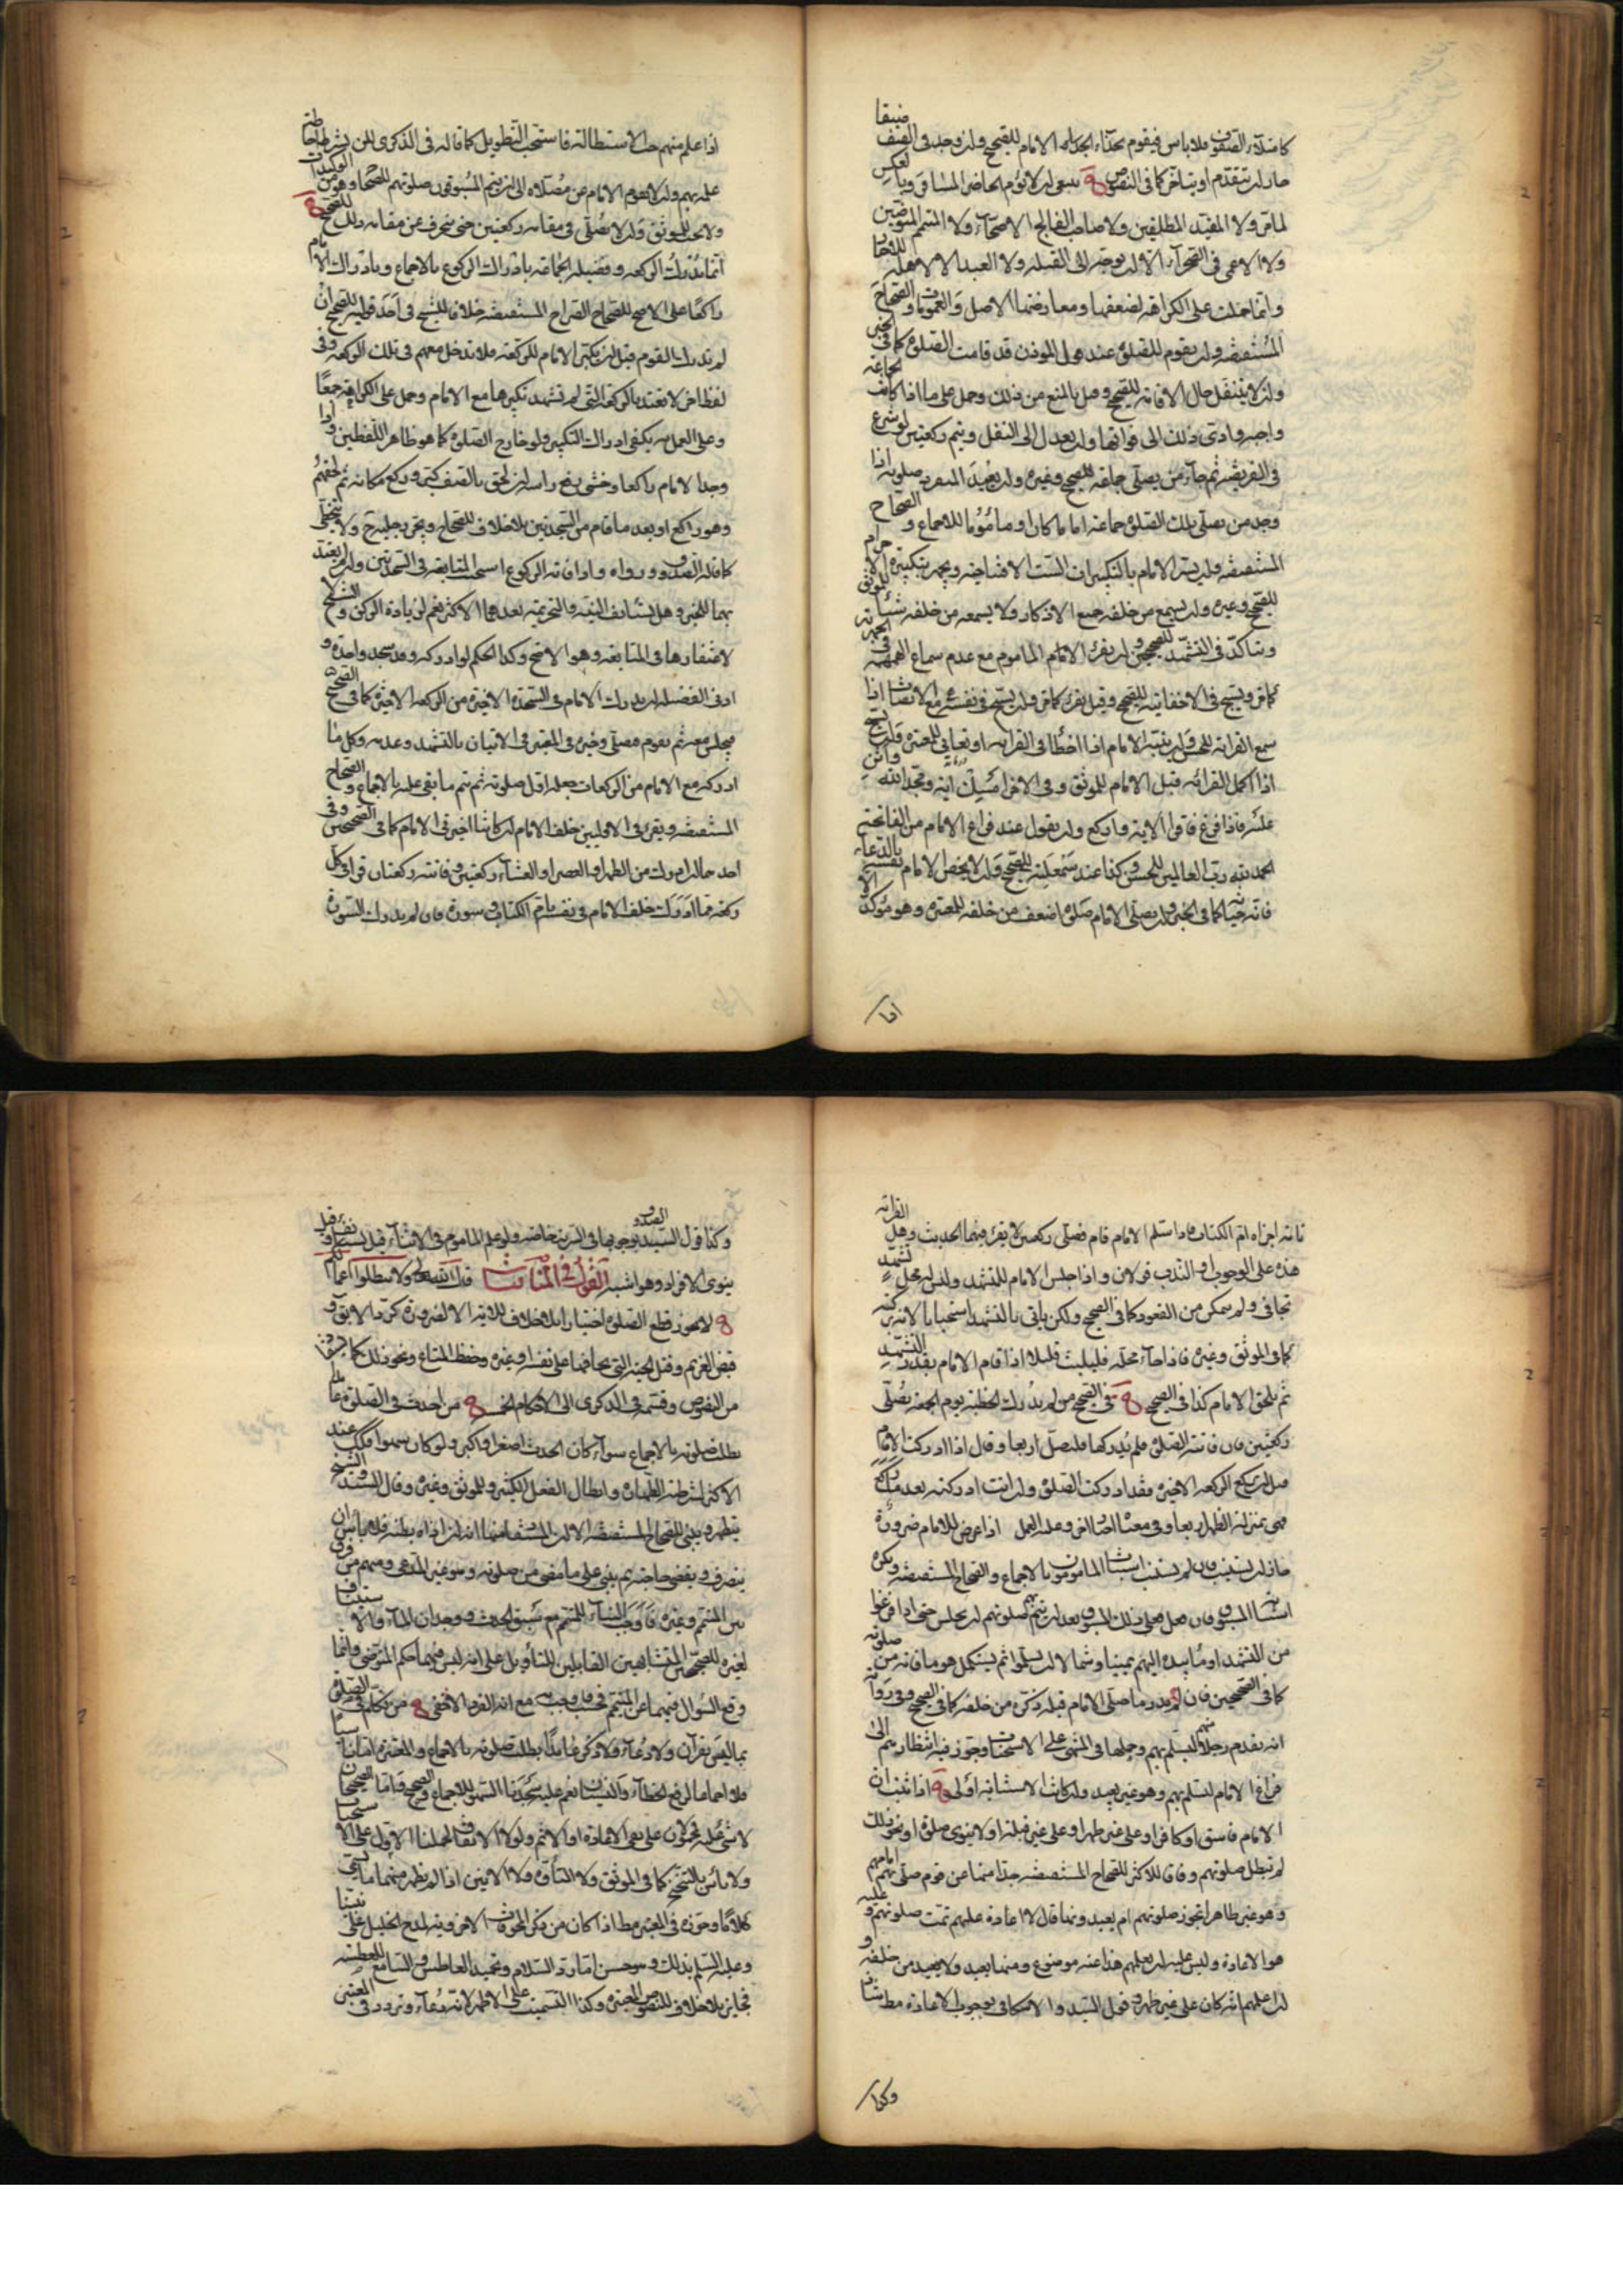 كامتلاء الصفوف فلا باس فيقوم بحذاء الامام للصحيح وان وجد في الصف ضيقا
جاز ان يتقدم او يتاخر كما في النصوص ينبغي ان لا يؤم الحاضر المسافر وبالعكس
لما مر ولا المقيد المطلقين ولا صاحب الفالج الاصحاء ولا المتيمم المتوضين
ولا الاعمى في الصحراء الا ان يوجه الى القبلة ولا العبد الا لاهله
وانما حملت على الكراهة لضعفها ومعارضتها الاصل والعمومات والصحاح
المستفيضة وان يقوم للصلوة عند قول المؤذن قد قامت الصلوة كما في الخبر
وان لا يتنفل حال الاقامة للصحيح وقيل بالمنع من ذلك وحمل على ما اذا كانت الجماعة
واجبة وادى ذلك الى فواتها وان يعدل الى النفل ويتم ركعتين لو شرع
في الفريضة ثم جاء من يصلي جماعة للصحيح وغيره وان يعيد المنفرد صلوته اذا
وجد من يصلي تلك الصلوة جماعة اماما كان او ماموما للاجماع والصحاح
المستفيضة وان يسر الامام بالتكبيرات الست الافتتاحية ويجهر بتكبيرة الاحرام
للصحيح وغيره وان يسمع من خلفه جميع الاذكار ولا يسمعه من خلفه شيئا للموثق
ويتاكد في التشهد للصحيح وان يقرء الامام الماموم مع عدم سماع الهمهمة في الجهرية
كما مر ويسبح في الاخفاتية للصحيح وقيل يقرء كما مر وان يسبح في نفسه مع الانصات اذا
سمع القرائة للحسن وان ينبه الامام اذا اخطأ في القرائة او تعايى للمعتبرة وان يسبح
اذا اكمل القرائة قبل الامام للموثق وفي الاخر امسك اية ومجد الله واثن
عليه فاذا فرغ فاقرا الاية واركع وان يقول عند فراغ الامام من الفاتحة
الحمد لله رب العالمين للحسن وكذا عند سمعلته للصحيح وان لا يخص الامام نفسه بالدعاء
فانه خيانة كما في الخبر وان يصلي الامام صلوة اضعف من خلفه للمعتبرة وهو مؤكد الا
اذا علم منهم حب الاستطالة فاستحب التطويل كما قاله في الذكرى لكن بشرط احاطة
علمه بهم وان لا يقوم الامام من مصلاه الى ان يتم المسبوقون صلوتهم للصحاح وهو من الوكيدات
ولا يجب للموثق وان لا يصلي في مقامه ركعتين حتى ينحرف عن مقامه ذلك للصحيح
انما يدرك الركعة وفضيلة الجماعة بادراك الركوع بالاجماع وبادراك الامام
راكعا على الاصح للصحاح الصراح المستفيضة خلافا للشيخ في احد قوليه للصحيح ان
لم تدرك القوم قبل ان يكبر الامام للركعة فلا تدخل معهم في تلك الركعة وفي
لفظ اخر لا تعتد بالركعة التي لم تشهد تكبيرها مع الامام وحمل على الكراهة جمعا
وعلى العمل به يكفي ادراك التكبير ولو خارج الصلوة كما هو ظاهر اللفظين واذا
وجد الامام راكعا وخشى رفع راسه ان لحق بالصف كبر وركع مكانه ثم لحقهم
وهو راكع او بعد ما قام من السجدتين بلا خلاف للصحاح ويجر رجليه ح ولا يتخطى
كما قاله الصدوق ورواه واذا فاته الركوع استحب المتابعة في السجدتين وان لم يعتد
بهما للخبر وهل يستانف النية والتحريمة بعدهما الاكثر نعم لزيادة الركن والشيخ لا
لاغتفارها في المتابعة وهو الاصح وكذا الحكم لو ادركه وقد سجد واحدة و
ادنى الفضل ان يدرك الامام في السجدة الاخيرة من الركعة الاخيرة كما في الصحيح
فيجلس معه ثم يقوم فيصلي وخير في المعتبر في الاتيان بالتشهد وعدمه وكل ما
ادركه مع الامام من الركعات جعله اول صلوته ثم يتم ما بقى عليه بالاجماع والصحاح
المستفيضة ويقرء في الاوليين خلف الامام ان كانتا اخيرتي الامام كما في الصحيحين وفي
احدهما ان ادرك من الظهر او العصر او العشاء ركعتين وفاتته ركعتان قرا في كل
ركعة مما ادرك خلف الامام في نفسه بام الكتاب وسورة فان لم يدرك السورة
تامة اجزاه ام الكتاب فاذا سلم الامام قام فصلى ركعتين لا يقرء فيهما الحديث وهل القرائة
هذه على الوجوب او الندب قولان واذا جلس الامام للتشهد وليس له محل تشهد
تجافى ولم يتمكن من القعود كما في الصحيح ولكن ياتي بالتشهد استحبابا لانه بركة
كما في الموثق وغيره فاذا جاء محله فليلبث قليلا اذا قام الامام بقدر التشهد
ثم يلحق الامام كذا في الصحيح في الصحيح من لم يدرك الخطبة يوم الجمعة يصلي
ركعتين فان فاتته الصلوة فلم يدركها فليصل اربعا وقال اذا ادركت الامام
قبل ان يركع الركعة الاخيرة فقد ادركت الصلوة وان انت ادركته بعد ما ركع
فهي بمنزلة الظهر اربعا وفي معناه اخبار اخر وعليه العمل اذا عرض للامام ضرورة
جاز ان يستنيب فان لم يستنب استناب المامومون بالاجماع والصحاح المستفيضة ويكره
استنابة المسبوق فان فعل فعلى ذلك المسبوق بعد ان يتم بهم صلوتهم ان يجلس حتى اذا فرغوا
من التشهد اومأ بيده اليهم يمينا وشمالا ان يسلموا ثم يستكمل هو ما فاته من صلوته
كما في الصحيحين فان لم يدر ما صلى الامام قبله ذكره من خلفه كما في الصحيح وفي رواية
انه يقدم رجلا منهم ليسلم بهم وحملها في المنتهى على الاستحباب وجوز فيه انتظارهم الى
فراغ الامام ليسلم بهم وهو غير بعيد وان كانت الاستنابة اولى اذا تبين ان
الامام فاسق او كافر او على غير طهر او على غير قبلة او لا ينوي صلوة او نحو ذلك
لم تبطل صلوتهم وفاقا للاكثر للصحاح المستفيضة جدا منها عن قوم صلى بهم امامهم
وهو غير طاهر اتجوز صلوتهم ام يعيدونها قال لا اعادة عليهم تمت صلوتهم وعليه
هو الاعادة وليس عليه ان يعلمهم هذا عنه موضوع ومنها يعيد ولا يعيد من خلفه و
ان اعلمهم انه كان على غير طهر وقول السيد والاسكافي بوجوب الاعادة مط شاذ
وكذا قول السيد والصدوق بوجوبها في السرية خاصة ولو علم الماموم في الاثناء قيل يستانف وقيل
ينوي الانفراد وهو اشبه القول في المنافيات قال الله تعالى ولا تبطلوا اعمالكم
لا يجوز قطع الصلوة اختيارا بلا خلاف للاية الا لضرورة كرد الابق و
قبض الغريم وقتل الحية التي يخافها على نفس او غيره وحفظ المتاع ونحو ذلك كما يستفاد
من النصوص وقسمه في الذكرى الى الاحكام الخمسة من احدث في الصلوة عامدا
بطلت صلوته بالاجماع سواء كان الحدث اصغر او اكبر ولو كان سهوا فكذلك عند
الاكثر لشرطية الطهارة وابطال الفعل الكثير وللموثق وغيره وقال السيد والشيخ
يتطهر ويبني للصحاح المستفيضة
ينصرف ويقضي حاجته ثم يبني على ما مضى من صلوته وهو غير المدعى ومنهم من فرق
بين المتيمم وغيره فاوجب البناء للمتيمم مع سبق الحدث ووجدان الماء والاستيناف
لغيره للصحيحين المتشابهين القابلين للتأويل على انه ليس فيهما حكم المتوضي وانما
وقع السؤال فيهما عن المتيمم فحسب مع انه الفرد الاخفى من تكلم في الصلوة
بما ليس بقرآن ولا دعاء ولا ذكر عامدا بطلت صلوته بالاجماع والمعتبرة اما ناسيا
فلا اجماعا لرفع الخطاء والنسيان نعم عليه سجدتا السهو للاجماع والصحيح واما الصحيحان
لا شئ عليه فمحمولان على نفي الاعادة او الاثم ولولا الاتفاق لحملنا الاول على الاستحباب
ولا باس بالتنحنح كما في الموثق ولا التأوه ولا الانين اذا لم يظهر منهما ما يسمى
كلاما وجوزه في المعتبر مطا اذا كان من ذكر المخوفات
فجايز بلا خلاف للنصوص المعتبرة وكذا التسميت على الاظهر لانه دعاء وتردد في المعتبر